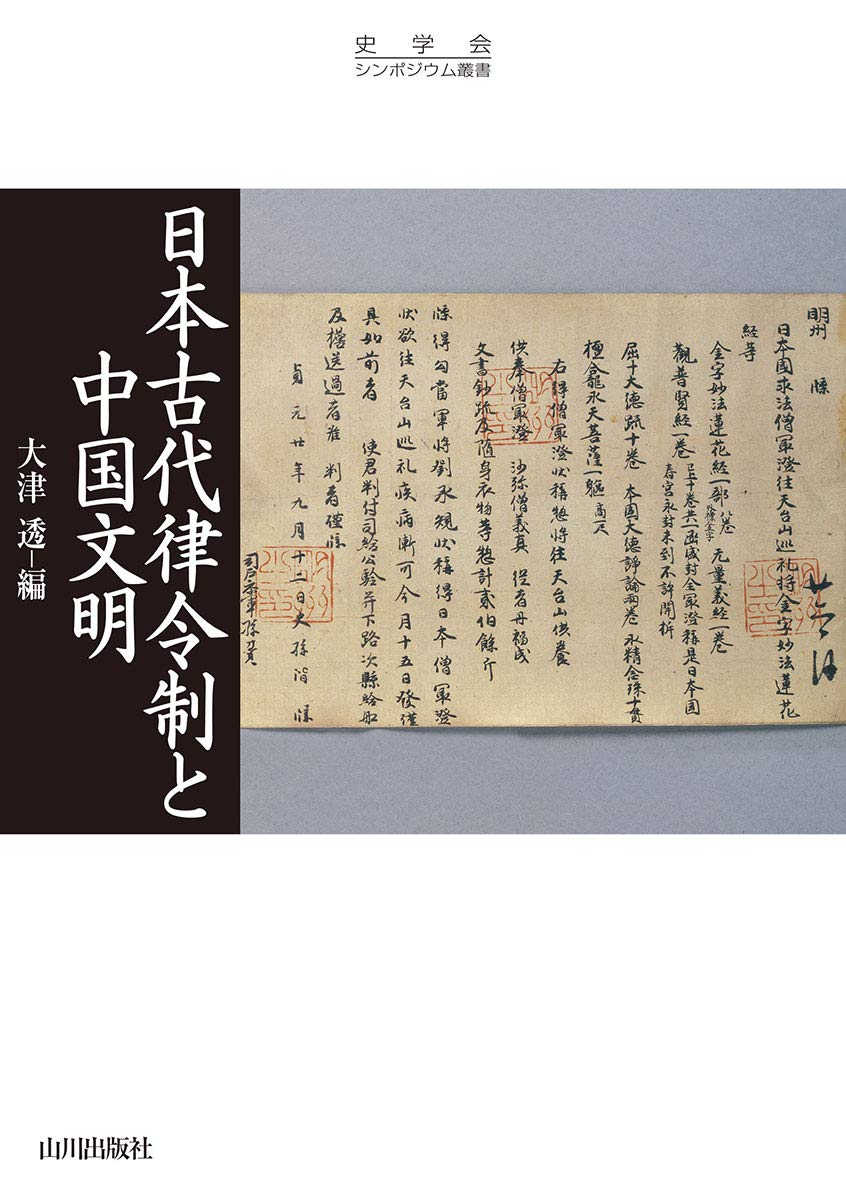 史学会
シンポジウム叢書
日本古代律令制と
中国文明
大津 透―編
明州 牒
日本國求法僧㝡澄往天台山巡礼将金字妙法蓮花
経等
金字妙法蓮花経一部 八巻 无量義経一巻
觀普賢経一巻 已上十巻共一函盛封全㝡澄稱是日本國
春宮永封未到不許開拆
屈十大德疏十卷 本國大德諍論兩卷 水精念珠十貫
檀龕水天菩薩一軀 高一尺
右得僧㝡澄状稱惣将往天台山供養
供奉僧㝡澄 沙弥僧義真 従者丹福成
文書鈔疏及随身衣物等惣計貳伯餘斤
牒得勾當軍将劉承規状稱得日本僧㝡澄
状欲往天台山巡礼疾病漸可今月十五日發謹
具如前者 使君判付司給公驗并下路次縣給舩
及擔送過者准 判者謹牒
貞元廿年九月十二日史孫階牒
司戶參軍孫
山川出版社